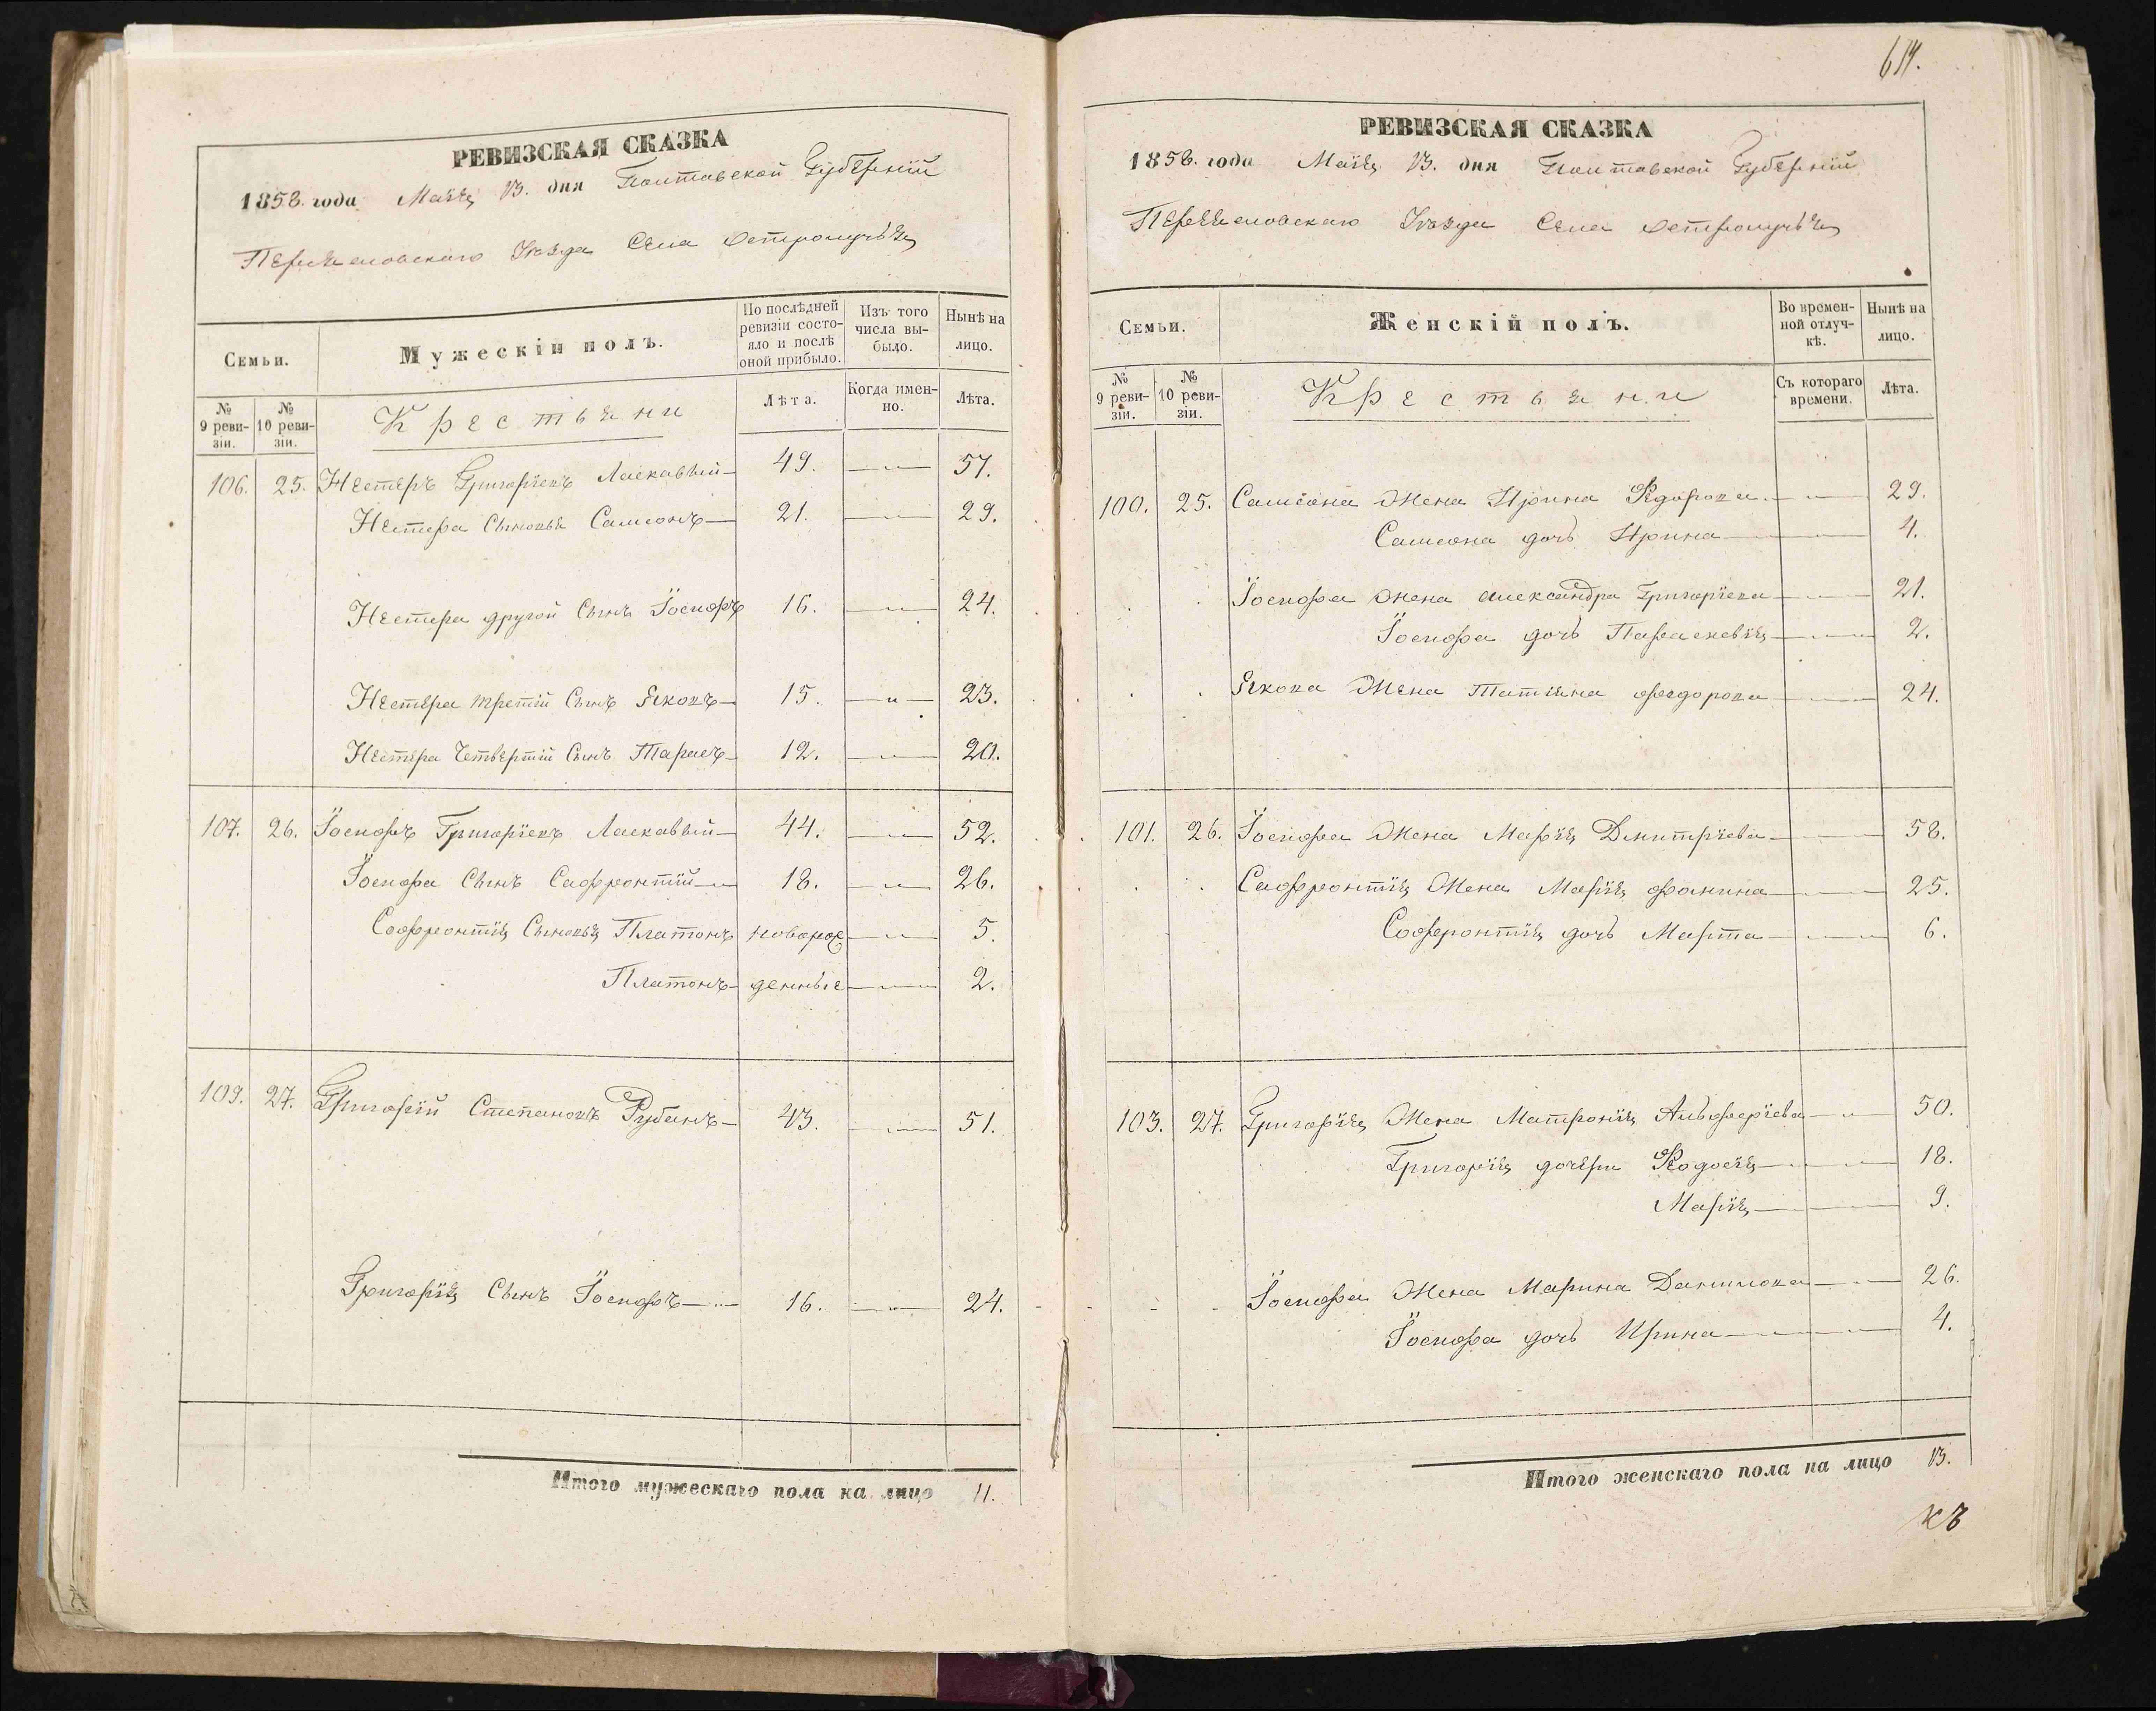 РЕВИЗСКАЯ СКАЗКА
1858. года Маія 13. дня Полтавской Губерніи
Переяславскаго Уѣзда Села
Семьи.
Мужескій полъ.
По послѣдней ревизіи состояло и послѣ оной прибыло.
Изъ того числа выбыло.
Нынѣ на лицо.
№ 9 ревизіи.
№ 10 ревизіи.
Крестьяни
Лѣта.
Когда именно.
Лѣта.
106. 25. Нестеръ Григоріевъ Ласкавый 49. 57.
Нестера Сыновья Самсонъ 21. 29.
Нестера другой Сынъ Іосифъ 16. 24.
Нестера третій Сынъ Яковъ 15. 23.
Нестера Четвертій Сынъ Тарасъ 12. 20.
107. 26. Іосифъ Григоріевъ Ласкавый 44. 52.
Іосифа Сынъ Сафронтій 18. 26.
Софронтія Сыновья Платонъ новорож 5.
Платонъ денные 2.
109. 27. Григорій Степановъ Рубанъ 43. 51.
Григорія Сынъ Іосифъ 16. 24.
Итого мужескаго пола на лицо 11.
614.
РЕВИЗСКАЯ СКАЗКА
1858. года Маія 13. дня Полтавской Губерніи
Переяславскаго Уѣзда Села
Семьи.
Женскій полъ.
Во временной отлучкѣ.
Нынѣ на лицо.
№ 9 ревизіи.
№ 10 ревизіи.
Крестьяни
Съ котораго времени.
Лѣта.
100. 25. Самсона Жена Ирина Федорова 29.
Самсона дочь Ирина 4.
Іосифа Жена Александра Григоріева 21.
Іосифа дочь Параскевія 2.
Якова Жена Татіяна Федорова 24.
101. 26. Іосифа Жена Марія Дмитріева 58.
Сафронтія Жена Марія Фомина 25.
Софронтія дочь Марта 6.
103. 27. Григорія Жена Матронія 50.
Григорія дочери Феодосія 18.
Марія 9.
Іосифа Жена Марина Данилова 26.
Іосифа дочь Ирина 4.
Итого женскаго пола на лицо 13.
къ